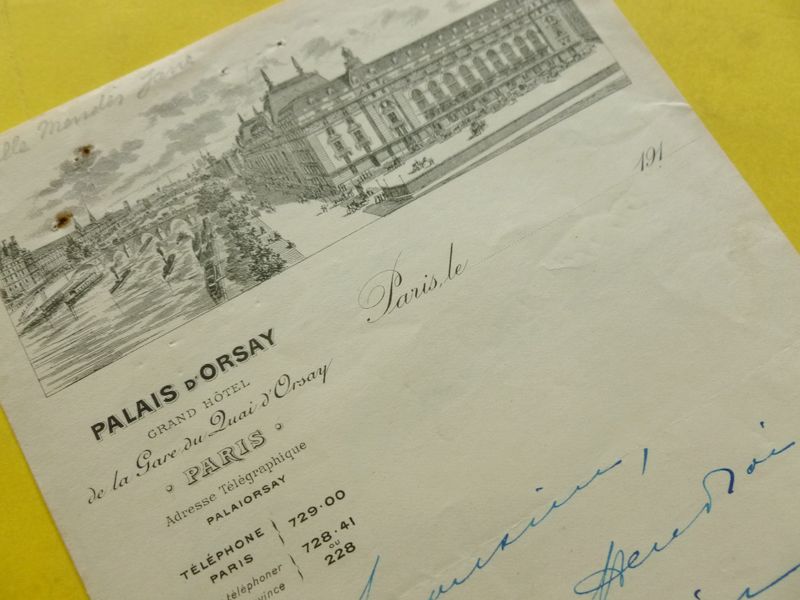 Mendès
191
Paris, le
PALAIS D'ORSAY
GRAND HÔTEL
de la Gare du Quai d'Orsay
PARIS
Adresse Télégraphique
PALAIORSAY
TÉLÉPHONE PARIS } 729·00
728·41
ou
228
téléphoner
vince
Monsieur,